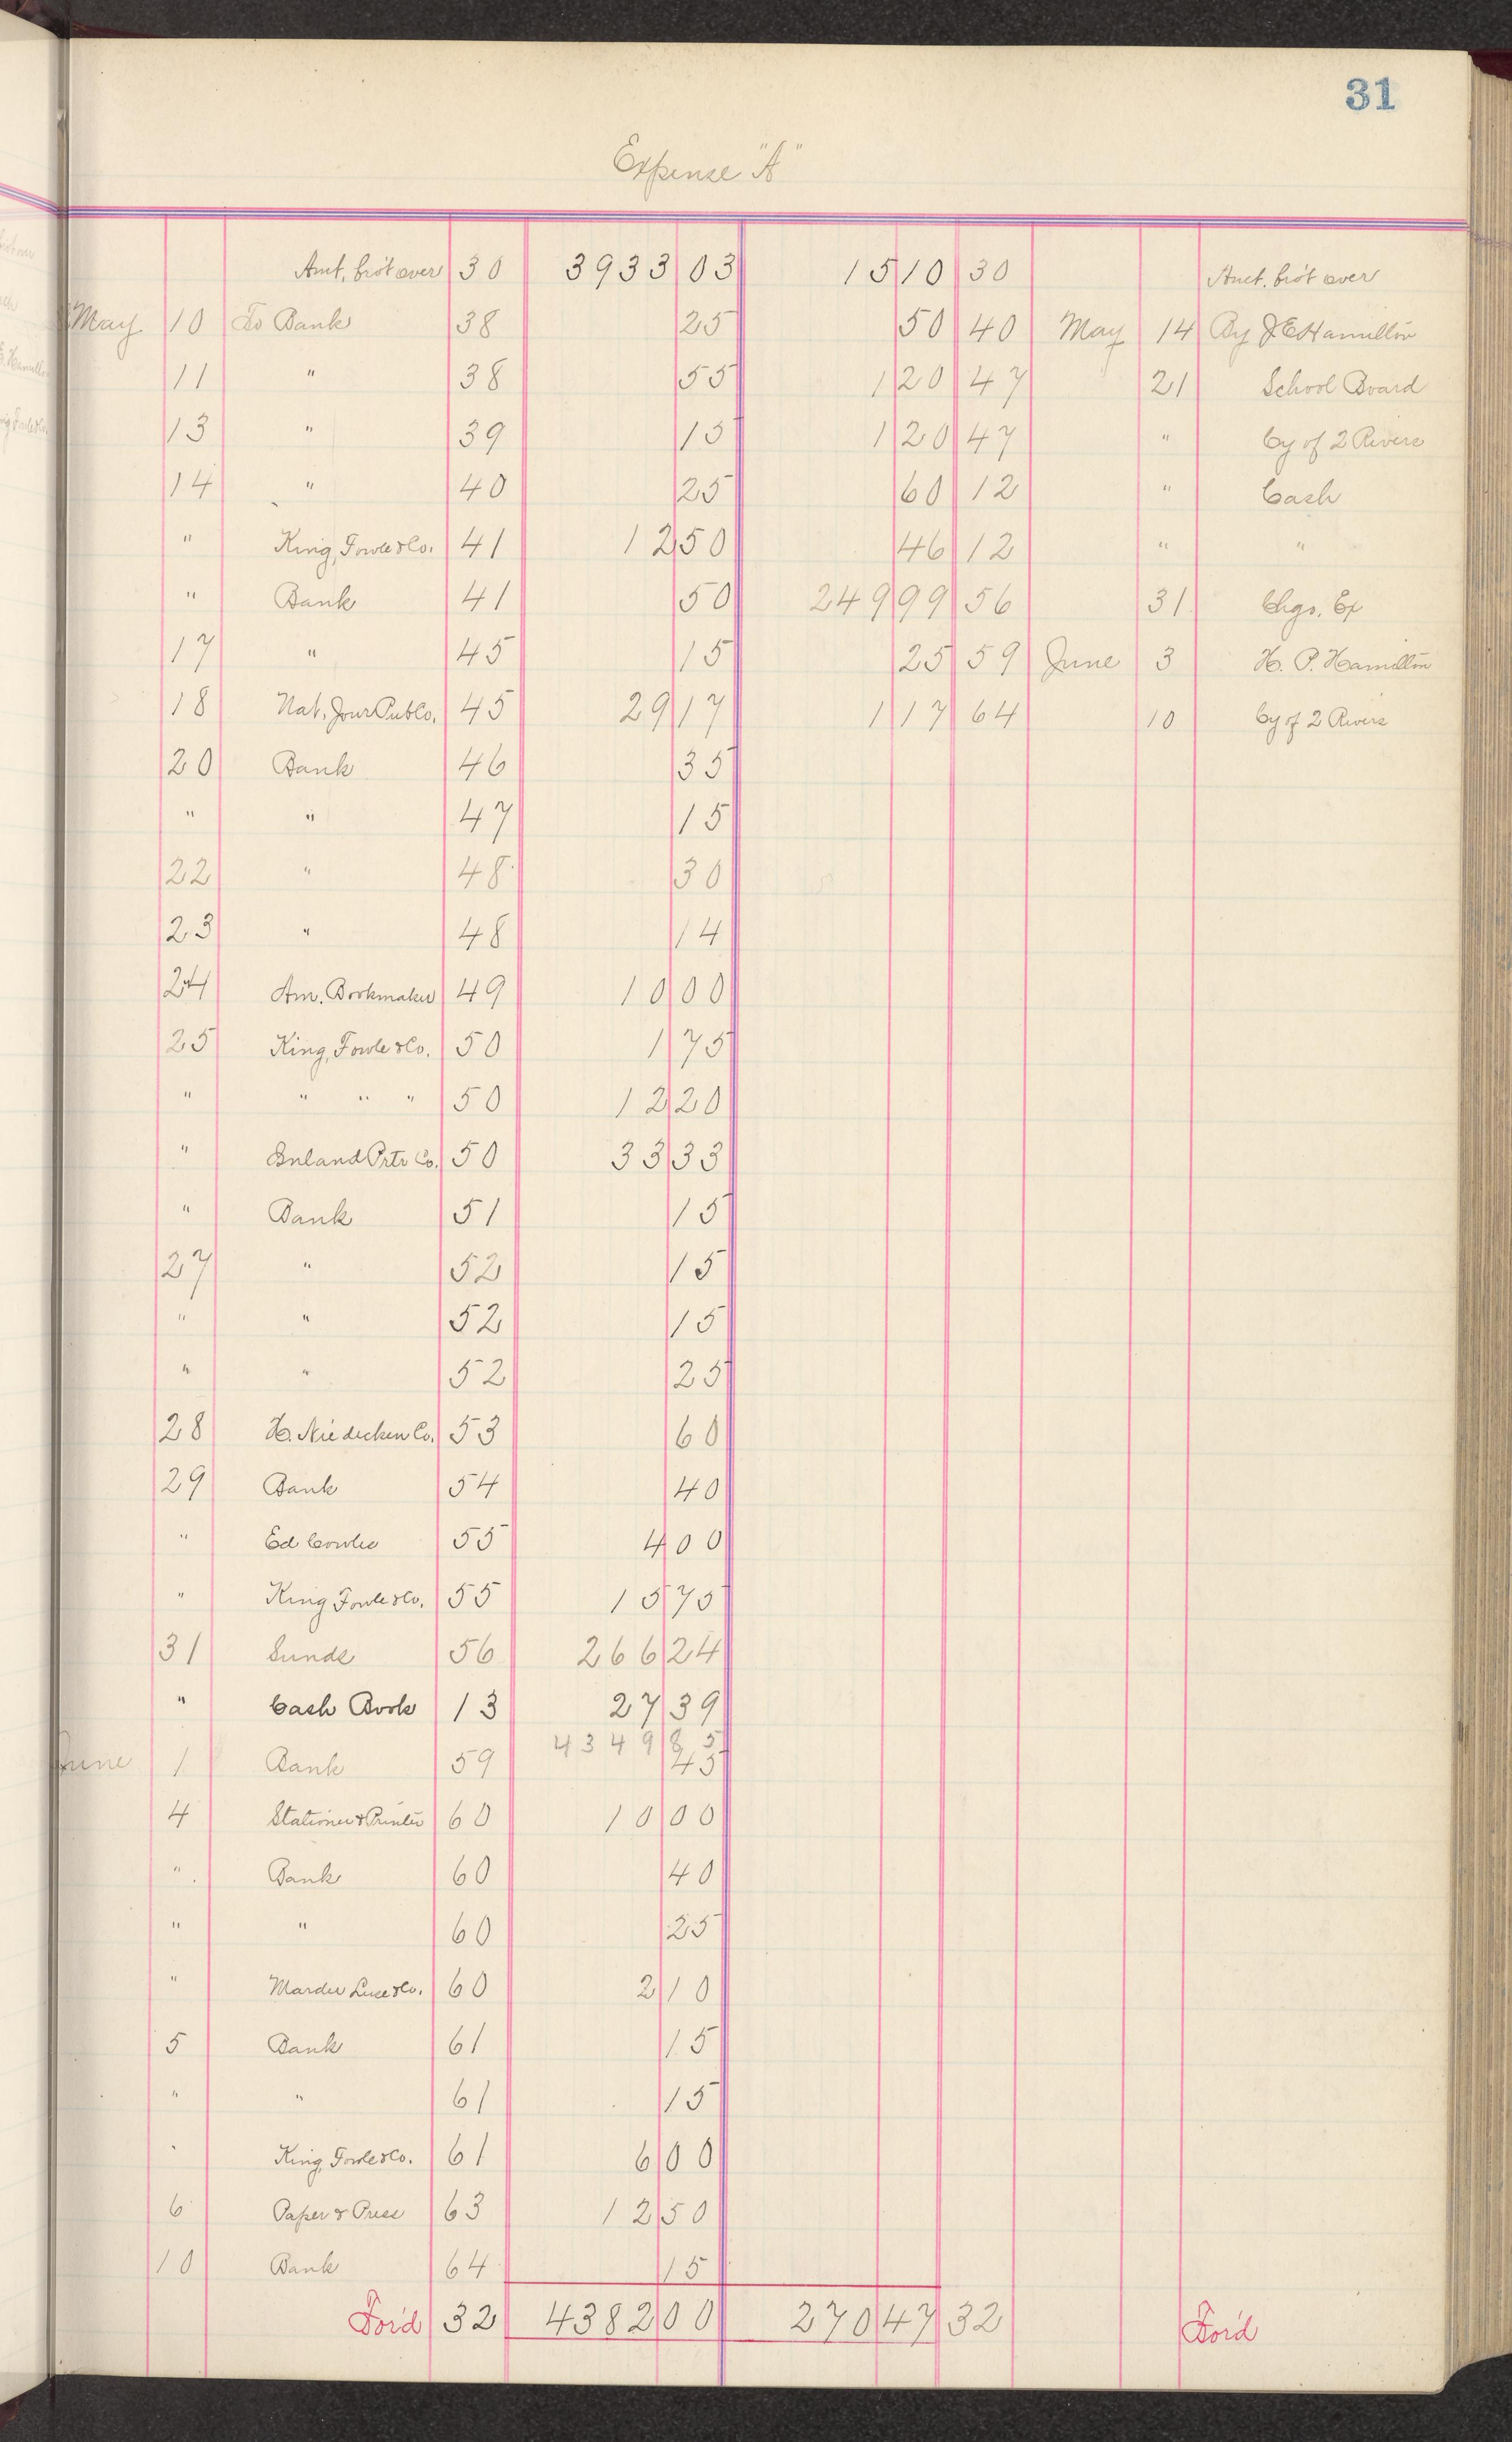 31
Expense "A"
Amt. bro't over 30 3933 03 15 10 30 Amt. bro't over
May 10 To Bank 38 25 50 40 May 14 By J E Hamilton
11 " 38 55 1 20 47 21 School Board
13 " 39 15 1 20 47 " Cy of 2 Rivers
14 " 40 25 60 12 " Cash
" King, Fowle & Co. 41 12 50 46 12 " "
" Bank 41 50 249 99 56 31 Chgs. Ex
17 " 45 15 25 59 June 3 H. P. Hamilton
18 Nat. Jour Pub Co. 45 29 17 1 17 64 10 Cy of 2 Rivers
20 Bank 46 35
" " 47 15
22 " 48 30
23 " 48 14
24 Am. Bookmaker 49 10 00
25 King, Fowle & Co. 50 1 75
" " " " 50 12 20
" Inland Prtr Co. 50 33 33
" Bank 51 15
27 " 52 15
" " 52 15
" " 52 25
28 H. Niedecken Co. 53 60
29 Bank 54 40
" Ed Cowles 55 4 00
" King Fowle & Co. 55 15 75
31 Sunds 56 266 24
" Cash Book 13 27 39
4349 85
June 1 Bank 59 45
4 Stationer & Printer 60 10 00
" Bank 60 40
" " 60 25
" Marder Luse & Co. 60 2 10
5 Bank 61 15
" " 61 15
" King, Fowle & Co. 61 6 00
6 Paper & Press 63 12 50
10 Bank 64 15
For'd 32 4382 00 270 47 32 For'd